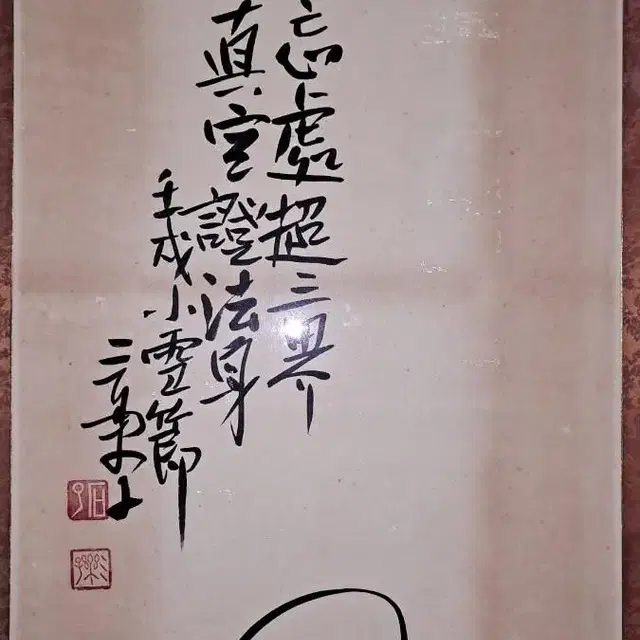 忘處超三界
真空證法身
壬戌小雪節